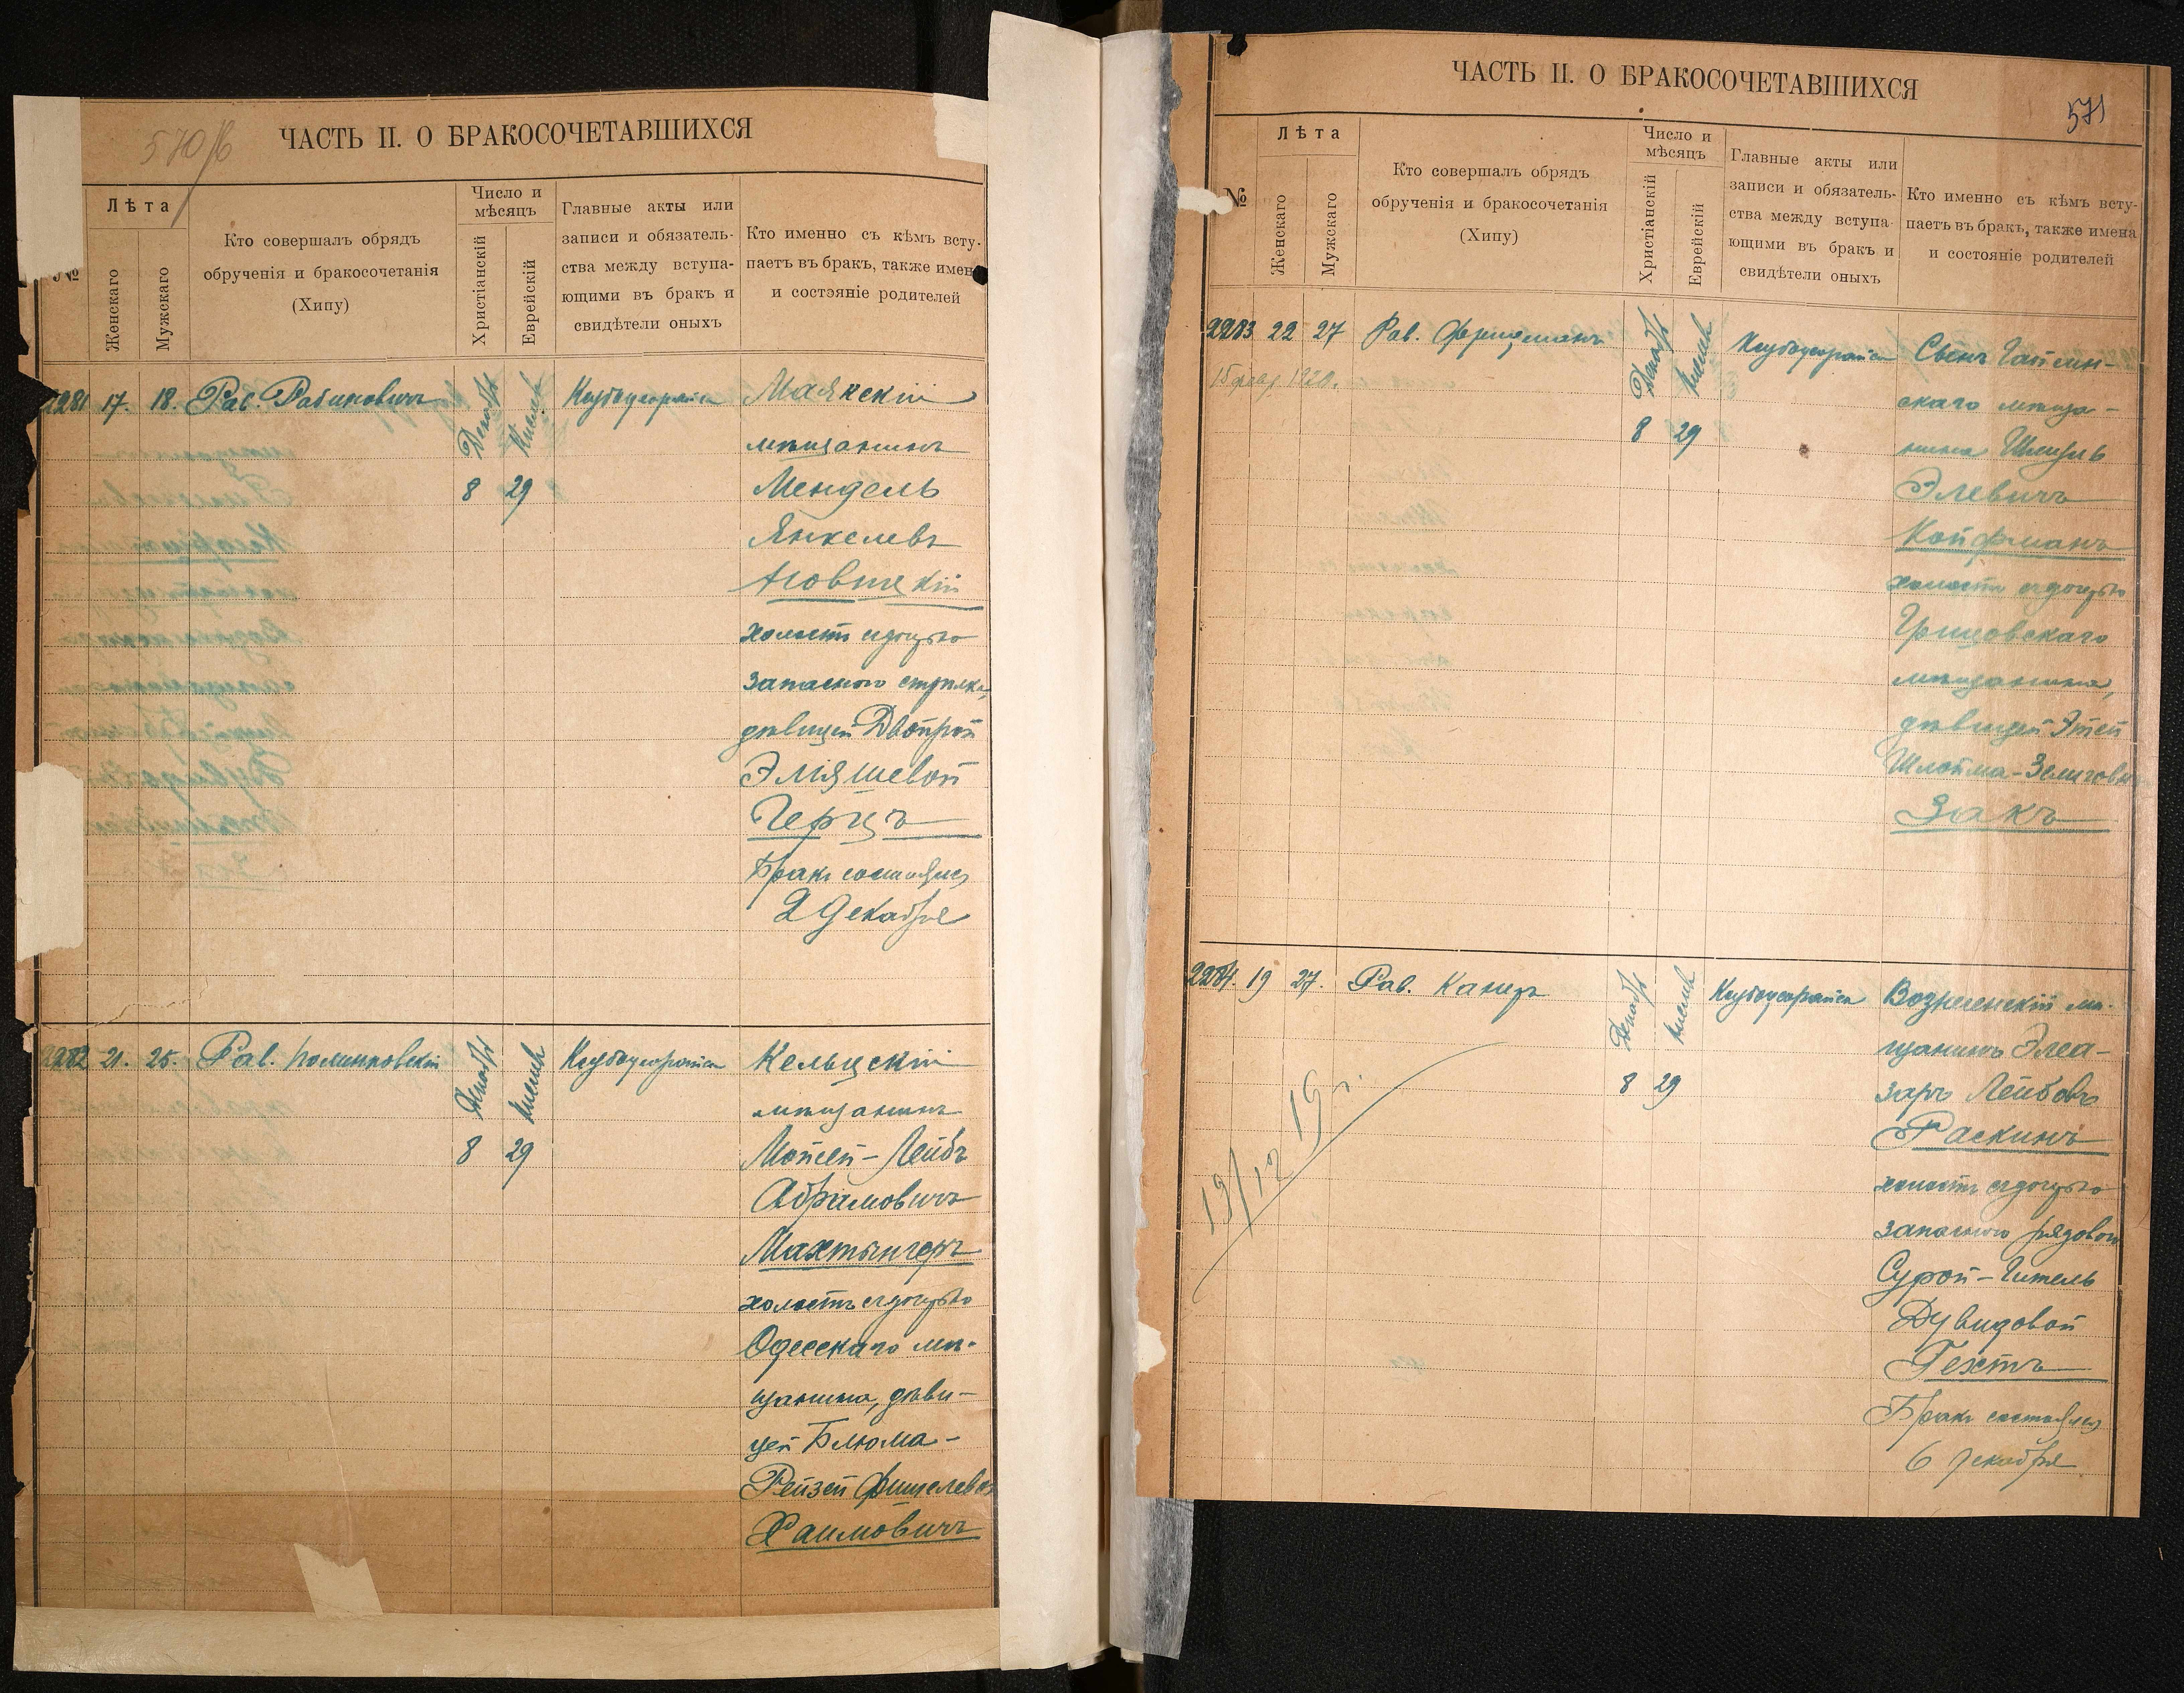 570/б
ЧАСТЬ II. О БРАКОСОЧЕТАВШИХСЯ
№
Лѣта
Женскаго
Мужскаго
Кто совершалъ обрядъ
обрученія и бракосочетанія
(Хипу)
Число и
мѣсяцъ
Христіанскій
Еврейскій
Главные акты или
записи и обязатель-
ства между вступа-
ющими въ бракъ и
свидѣтели оныхъ
Кто именно съ кѣмъ всту-
паетъ въ бракъ, также имен
и состэяніе родителей
2281 17. 18. Рав. Рабиновичъ
Декабр
Кислев
8 29
Маякскій
мѣщанинъ
Мендель
Янкелевъ
холостъ съ дочерью
запасного стрѣлка,
дѣвицей Двойрой
Эліяшевой
Герцъ
Бракъ состоялся
2 Декабря
2282 21. 25. Рав. Полинковскій
Декабр
Кислев
8 29
Кельцскій
мѣщанинъ
Мойсей-Лейбъ
Абрамовичъ
Махтынгеръ
холостъ съ дочерью
Одесскаго мѣ-
щанина, дѣви-
цей Блюма-
Рейзей Фишелевой
Хаимовичъ
ЧАСТЬ II. О БРАКОСОЧЕТАВШИХСЯ
571
№
Лѣта
Женскаго
Мужскаго
Кто совершалъ обрядъ
обрученія и бракосочетанія
(Хипу)
Число и
мѣсяцъ
Христіанскій
Еврейскій
Главные акты или
записи и обязатель-
ства между вступа-
ющими въ бракъ и
свидѣтели оныхъ
Кто именно съ кѣмъ всту-
паетъ въ бракъ, также имена
и состояніе родителей
2283 22 27 Рав. Фридманъ
15 февр. 1920.
Декабр
Кислев
8 29
Сынъ Гайсин-
скаго мѣща-
нина Шмуль
Элевичъ
Койфманъ
холостъ съ дочерью
Грицовскаго
мѣщанина,
дѣвицей Этей
Шлойма-Зелиговой
Закъ
2284. 19 27. Рав. Канеръ
19/12 19 г.
Декабр
Кислев
8 29
Вознесенскій мѣ-
щанинъ Элеа-
заръ Лейбовъ
Раскинъ
холостъ съ дочерью
запасного рядового
Сурой-Гитель
Дувидовой
Гехтъ
Бракъ состоялся
6 декабря